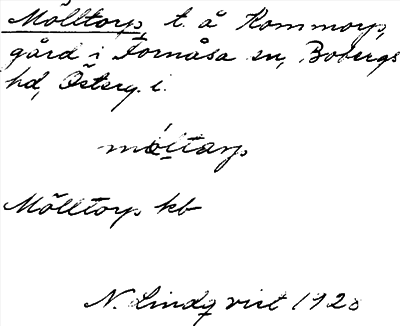 Mölltorp, t. å Kommorp,
gård i Fornåsa sn, Bobergs
hd, Österg. i.
Mölltorp kb
N. Lindqvist 1928